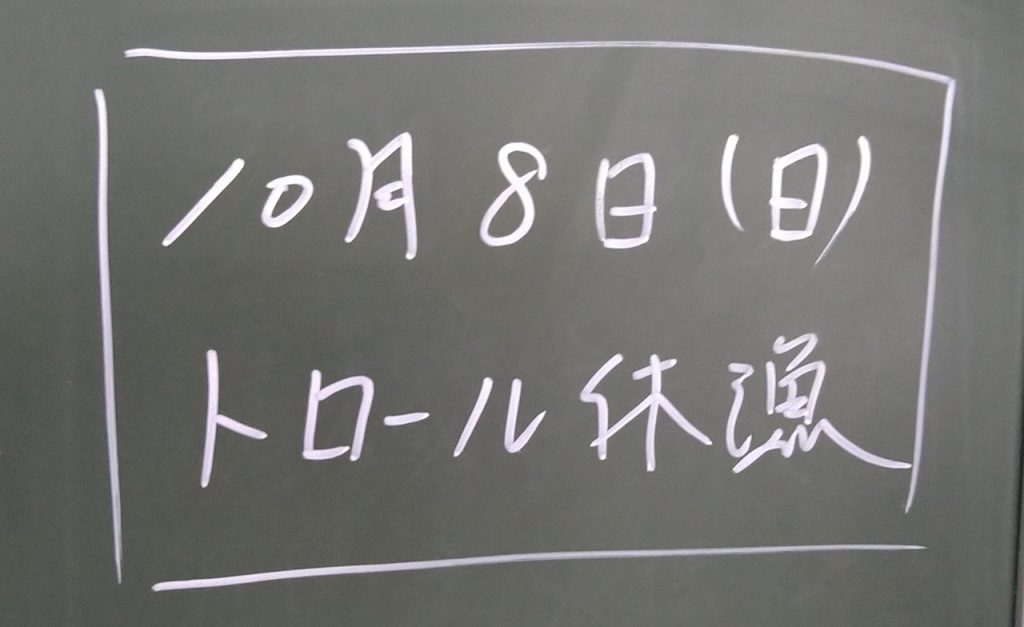 10月8日(日)
トロール休漁